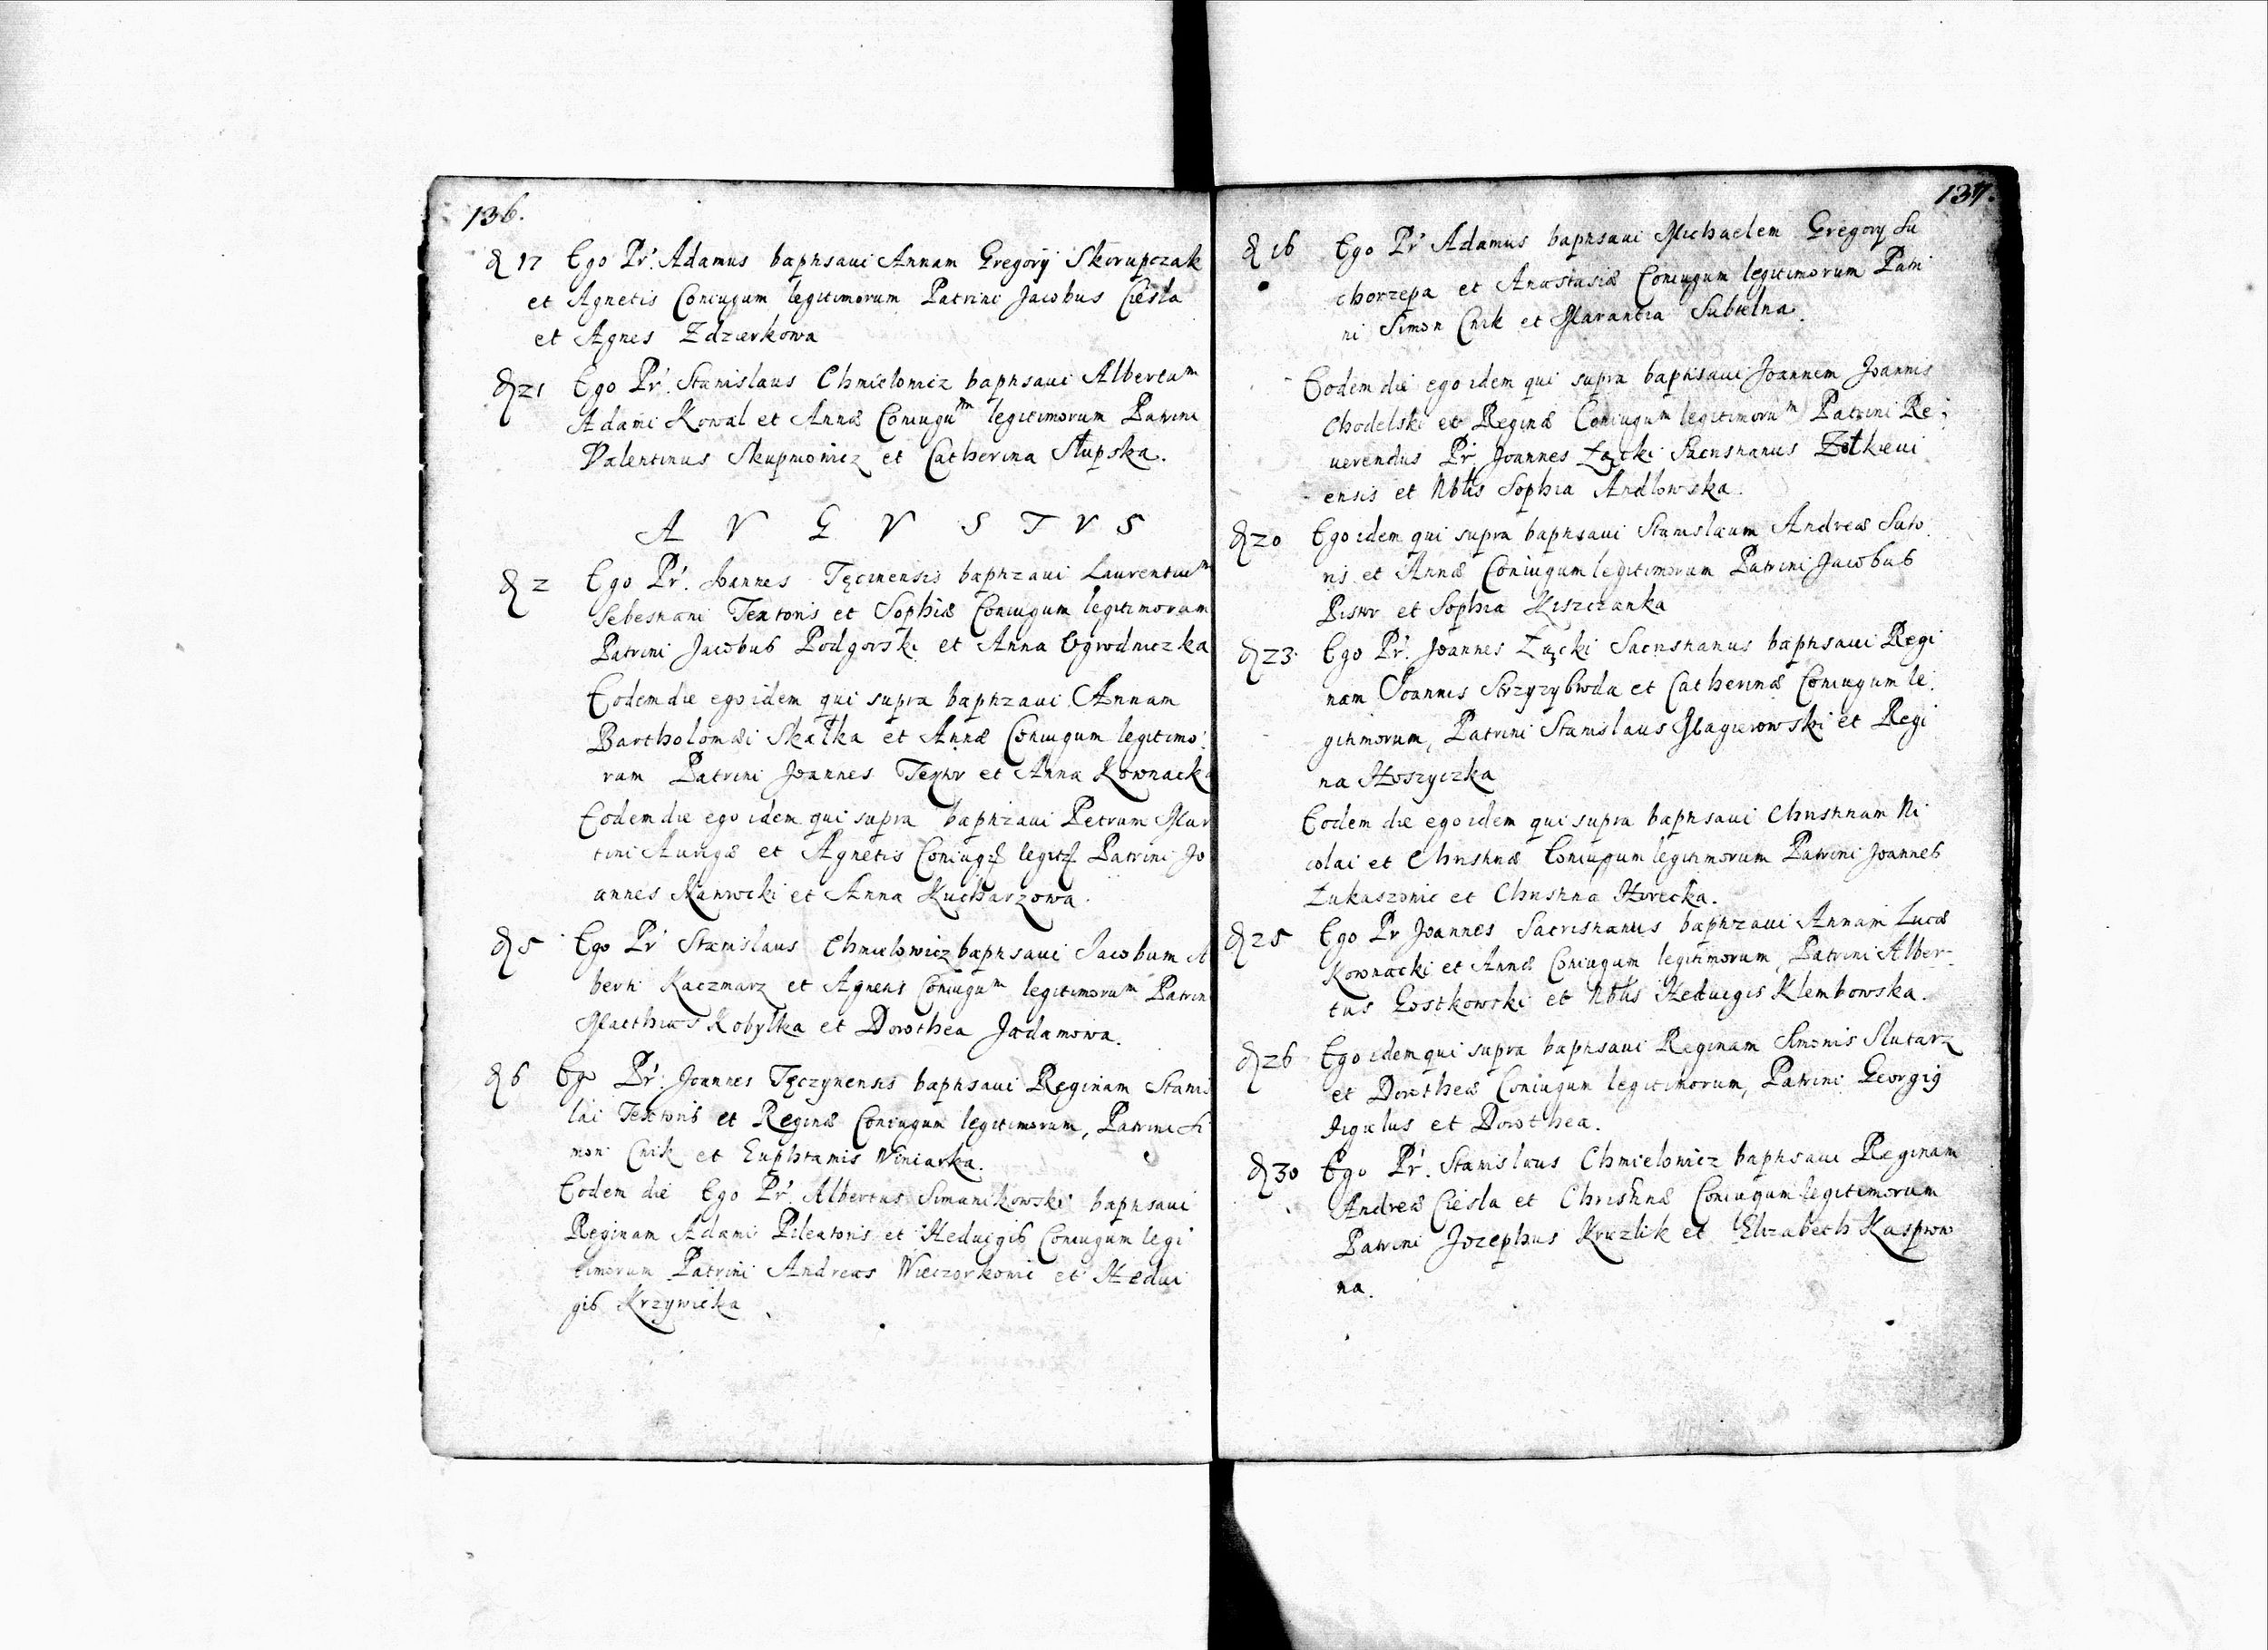 136.
D 17 Ego Pr. Adamus baptisaui Annam Gregorij Skorupczak
et Agnetis Coniugum legitimorum Patrini Jacobus Ciesla
et Agnes Zdzierkowa
D 21 Ego Pr. Stanislaus Chmielowicz baptisaui Albertum
Adami Kowal et Annæ Coniugum legitimorum Patrini
Valentinus Skupniowicz et Catherina Słupska.
A V G V S T V S
D 2 Ego Pr. Joannes Tęcinensis baptizaui Laurentium
Sebestiani Textoris et Sophiæ Coniugum legitimorum
Patrini Jacobus Podgorski et Anna Ogrodniczka
Eodem die ego idem qui supra baptizaui Annam
Bartholomæi Skałka et Annæ Coniugum legitimo
rum Patrini Joannes Textor et Anna Kownacka
Eodem die ego idem qui supra baptizaui Petrum Mar
tini Aurigæ et Agnetis Coniug. legit. Patrini Jo
annes Nawrocki et Anna Kucharzowa.
D 5 Ego Pr Stanislaus Chmielowicz baptisaui Jacobum Al
berti Kaczmarz et Agnetis Coniugum legitimorum Patrin
Matthias Kobyłka et Dorothea Jadamowa.
D 6 Ego Pr. Joannes Tęczynensis baptisaui Reginam Stanis
lai Textoris et Reginæ Coniugum legitimorum, Patrini Si
mon Cnik et Euphramis Winiarka.
Eodem die Ego Pr. Albertus Simanikowski baptisaui
Reginam Adami Pileatoris et Heduigis Coniugum legi
timorum Patrini Andreas Wieczorkowic et Hedui
gis Krzywicka
137.
D 16 Ego Pr Adamus baptisaui Michaelem Gregorij Su
chorzepa et Anastasiæ Coniugum legitimorum Patri
ni Simon Cnik et Marantia Subtelna.
Eodem die ego idem qui supra baptisaui Joannem Joannis
Chodelski et Reginæ Coniugum legitimorum Patrini Re
uerendus Pr Joannes Łącki Sacristianus Żołkieui
ensis et Nblis Sophia Andlowska.
D 20 Ego idem qui supra baptisaui Stanislaum Andreæ Suto
ris et Annæ Coniugum legitimorum Patrini Jacobus
Pistor et Sophia Kiszczanka
D 23. Ego Pr. Joannes Łącki Sacristianus baptisaui Regi
nam Joannis Strzyzybroda et Catherinæ Coniugum le
gitimorum, Patrini Stanislaus Magierowski et Regi
na Hoszyczka
Eodem die ego idem qui supra baptisaui Christinam Ni
colai et Christinæ Coniugum legitimorum Patrini Joannes
Łukaszowic et Christina Horecka.
D 25 Ego Pr Joannes Sacristianus baptizaui Annam Lucæ
Kownacki et Annæ Coniugum legitimorum, Patrini Alber-
tus Gostkowski et Nblis Heduigis Klembowska.
D 26 Ego idem qui supra baptisaui Reginam Simonis Slutarz
et Dorotheæ Coniugum legitimorum, Patrini Georgig
Figulus et Dorothea.
D 30 Ego Pr. Stanislaus Chmielowicz baptisaui Reginam
Andreæ Ciesla et Christinæ Coniugum legitimorum
Patrini Jozephus Kruzlik et Elizabeth Kasprow
na.